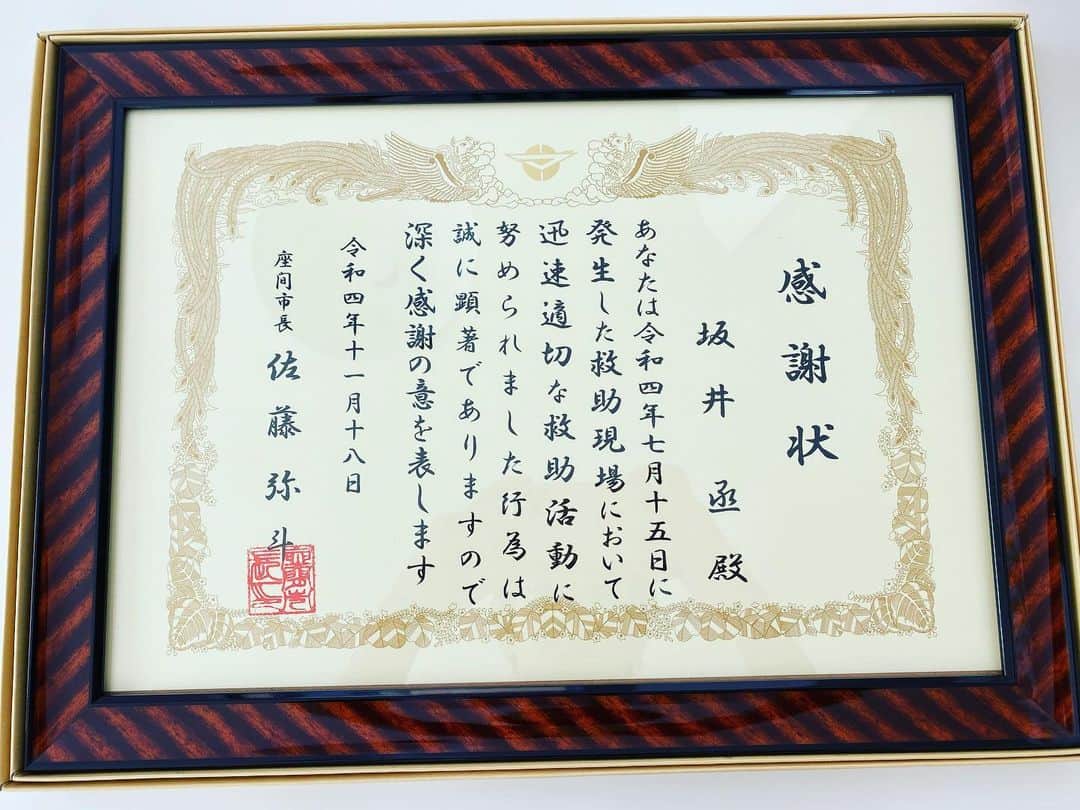 感謝状
坂井 丞 殿
あなたは令和四年七月十五日に
発生した救助現場において
迅速適切な救助活動に
努められました行為は
誠に顕著でありますので
深く感謝の意を表します
令和四年十一月十八日
座間市長 佐藤弥斗